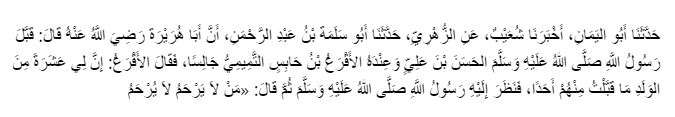 حَدَّثَنَا أَبُو اليَمَانِ، أَخْبَرَنَا شُعَيْبٌ، عَنِ الزُّهْرِيِّ، حَدَّثَنَا أَبُو سَلَمَةَ بْنُ عَبْدِ الرَّحْمَنِ، أَنَّ أَبَا هُرَيْرَةَ رَضِيَ اللَّهُ عَنْهُ قَالَ: قَبَّلَ
رَسُولُ اللَّهِ صَلَّى اللهُ عَلَيْهِ وَسَلَّمَ الحَسَنَ بْنَ عَلِيٍّ وَعِنْدَهُ الأَقْرَعُ بْنُ حَابِسٍ التَّمِيمِيُّ جَالِسًا، فَقَالَ الأَقْرَعُ: إِنَّ لِي عَشَرَةً مِنَ
الوَلَدِ مَا قَبَّلْتُ مِنْهُمْ أَحَدًا، فَنَظَرَ إِلَيْهِ رَسُولُ اللَّهِ صَلَّى اللهُ عَلَيْهِ وَسَلَّمَ ثُمَّ قَالَ: «مَنْ لاَ يَرْحَمُ لاَ يُرْحَمُ